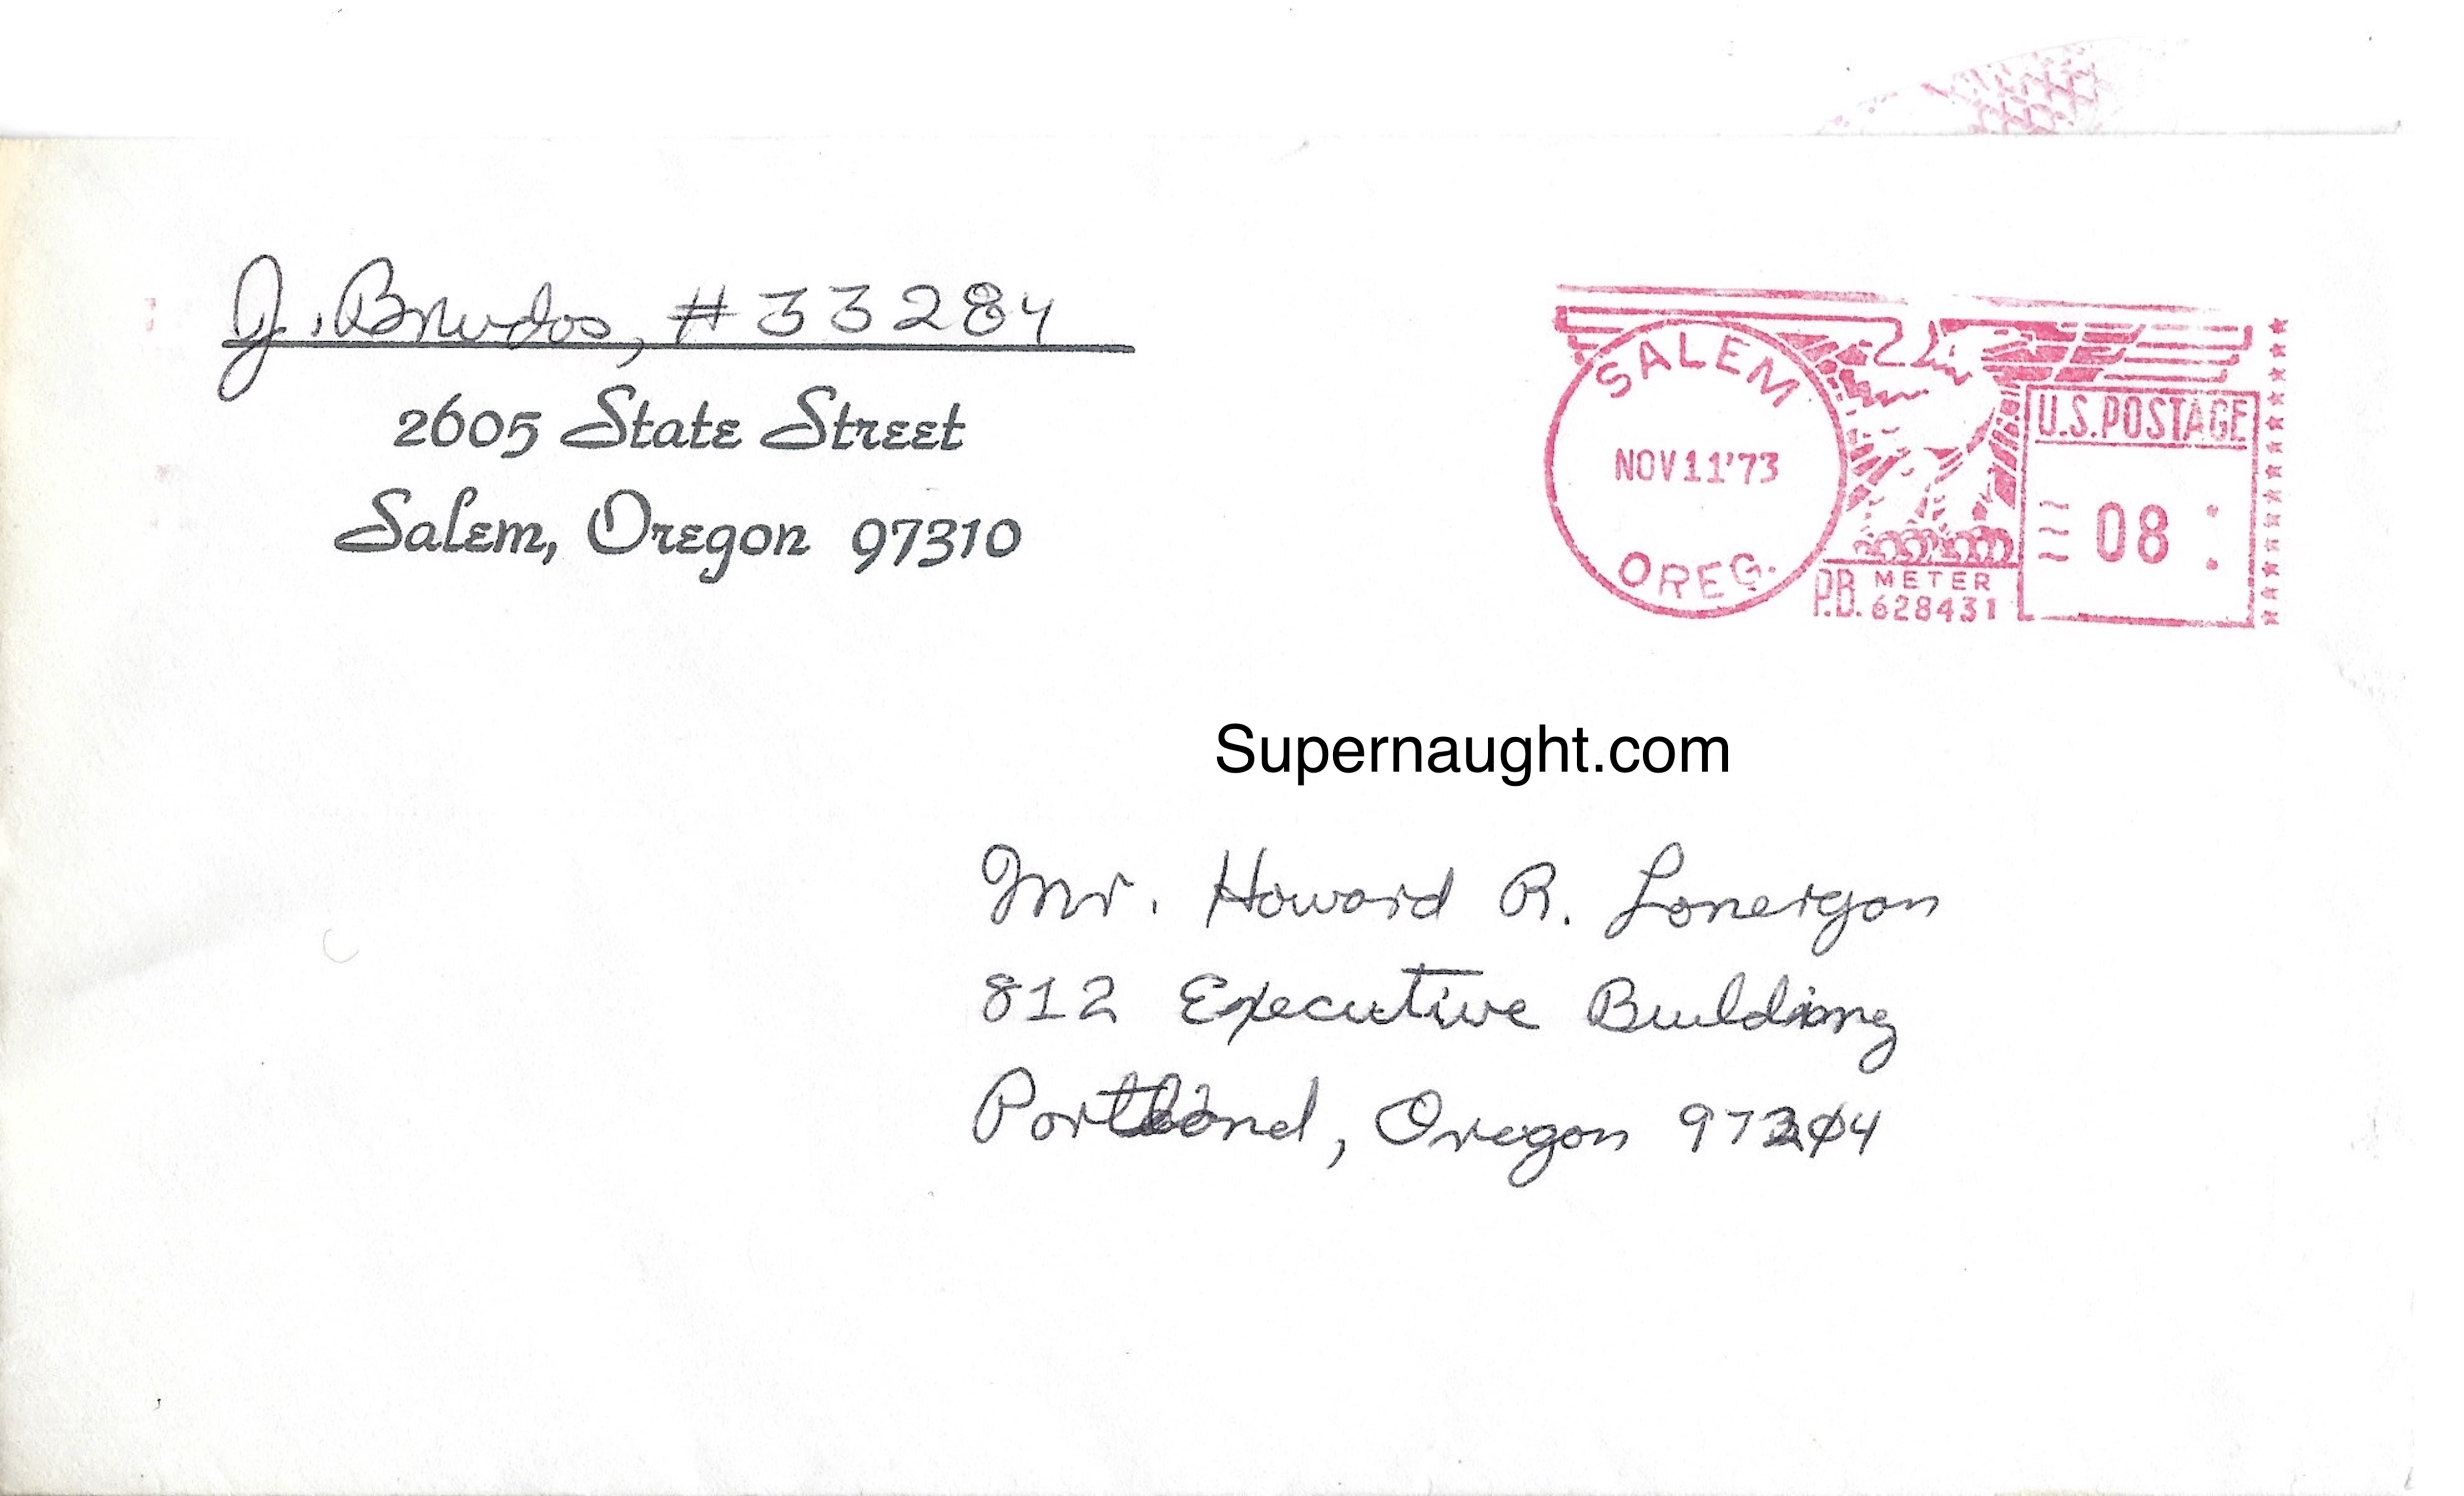 J. Brudos, #33284
2605 State Street
Salem, Oregon 97310
SALEM
NOV 11 '73
OREG.
U.S. POSTAGE
08
P.B. METER
628431
Supernaught.com
Mr. Howard R. Lonergan
812 Executive Building
Portland, Oregon 97204